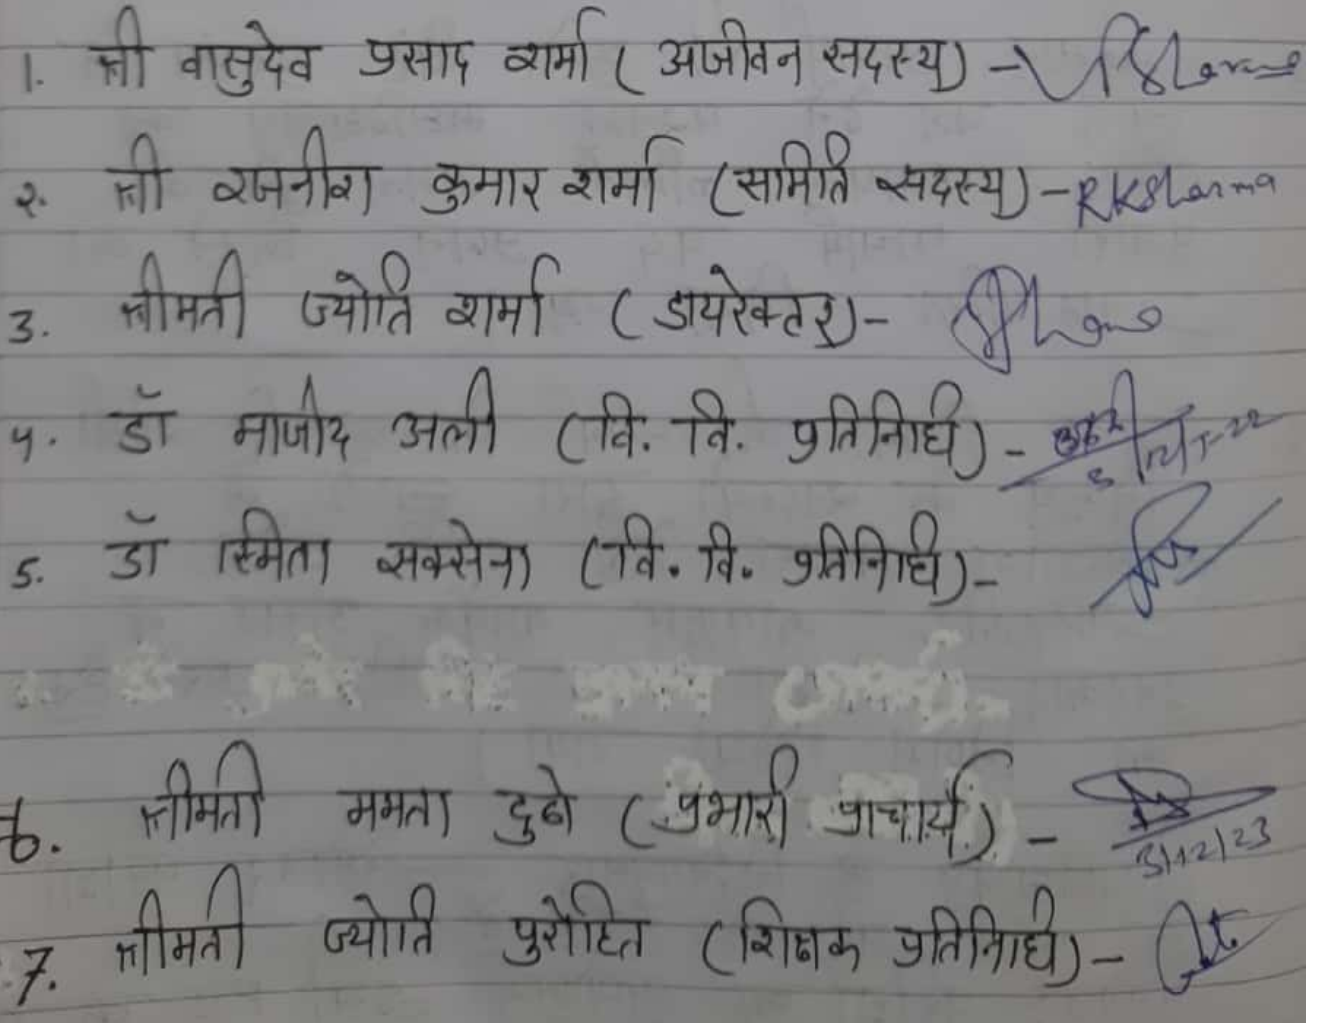 1. श्री वासुदेव प्रसाद शर्मा ( अजीवन सदस्य) - VPSharma
२. श्री रजनीश कुमार शर्मा (समिति सदस्य) - RKSharma
3. श्रीमती ज्योति शर्मा ( डायरेक्टर) -
4. डॉ माजीद अली (वि. वि. प्रतिनिधि) -
5. डॉ स्मिता सक्सेना (वि. वि. प्रतिनिधि) -
6. श्रीमती ममता दुबे (प्रभारी प्राचार्य) -
3/12/23
7. श्रीमती ज्योति पुरोहित (शिक्षक प्रतिनिधि) -